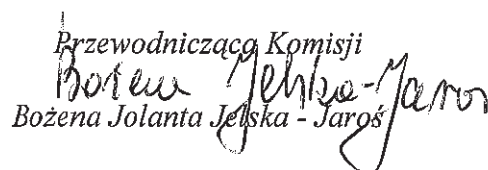 Przewodnicząca Komisji
Bożena Jelska-Jaroś
Bożena Jolanta Jelska - Jaroś